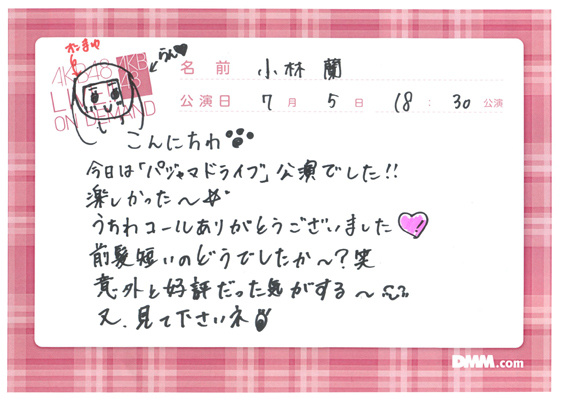 オンまゆ
らん♥
AKB48
LIVE
ON DEMAND
AKB
48
名前 小林 蘭
公演日 7月 5日 18:30公演
こんにちわ
今日は「パジャマドライブ」公演でした!!
楽しかった〜
うちわコールありがとうございました!
前髪短いのどうでしたか〜?笑
意外と好評だった気がする〜
又、見て下さいネ
DMM.com